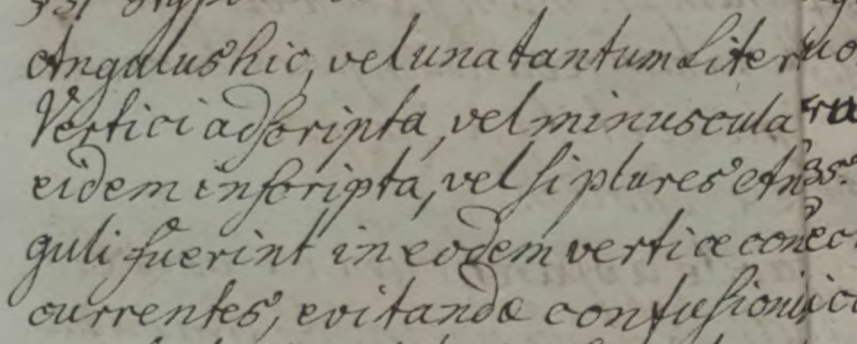 Angulus hic, vel una tantum Liter
Vertici adscripta, vel minuscula
eidem inscripta, vel si plures An
guli fuerint in eodem vertice con
currentes, evitandæ confusionis